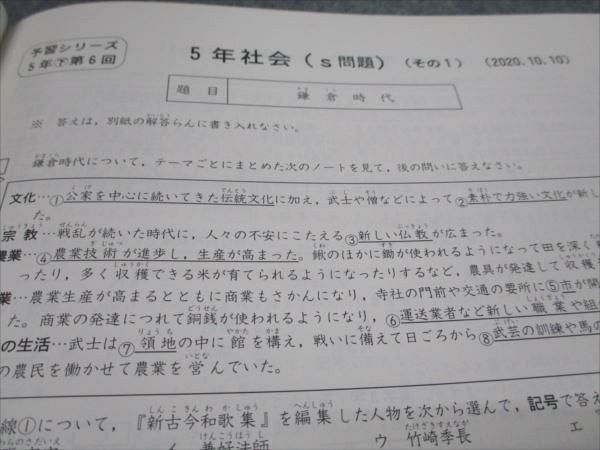 予習シリーズ
5年下第6回
5年社会(s問題) (その1) (2020.10.10)
題目 鎌倉時代
※ 答えは，別紙の解答らんに書き入れなさい。
鎌倉時代について，テーマごとにまとめた次のノートを見て，後の問いに答えなさい。
文化…①公家を中心に続いてきた伝統文化に加え，武士や僧などによって②素朴で力強い文化が新し
た。
宗教…戦乱が続いた時代に，人々の不安にこたえる③新しい仏教が広まった。
農業…④農業技術が進歩し，生産が高まった。鍬のほかに鋤が使われるようになって田を深く
ったり，多く収穫できる米が育てられるようになったりするなど，農具が発達して収穫
業…農業生産が高まるとともに商業もさかんになり，寺社の門前や交通の要所に⑤市が開
た。商業の発達につれて銅銭が使われるようになり，⑥運送業者など新しい職業や組
の生活…武士は⑦領地の中に館を構え，戦いに備えて日ごろから⑧武芸の訓練や馬の
の農民を働かせて農業を営んでいた。
線①について，『新古今和歌集』を編集した人物を次から選んで，記号で答え
イ 兼好法師 ウ 竹崎季長 エ